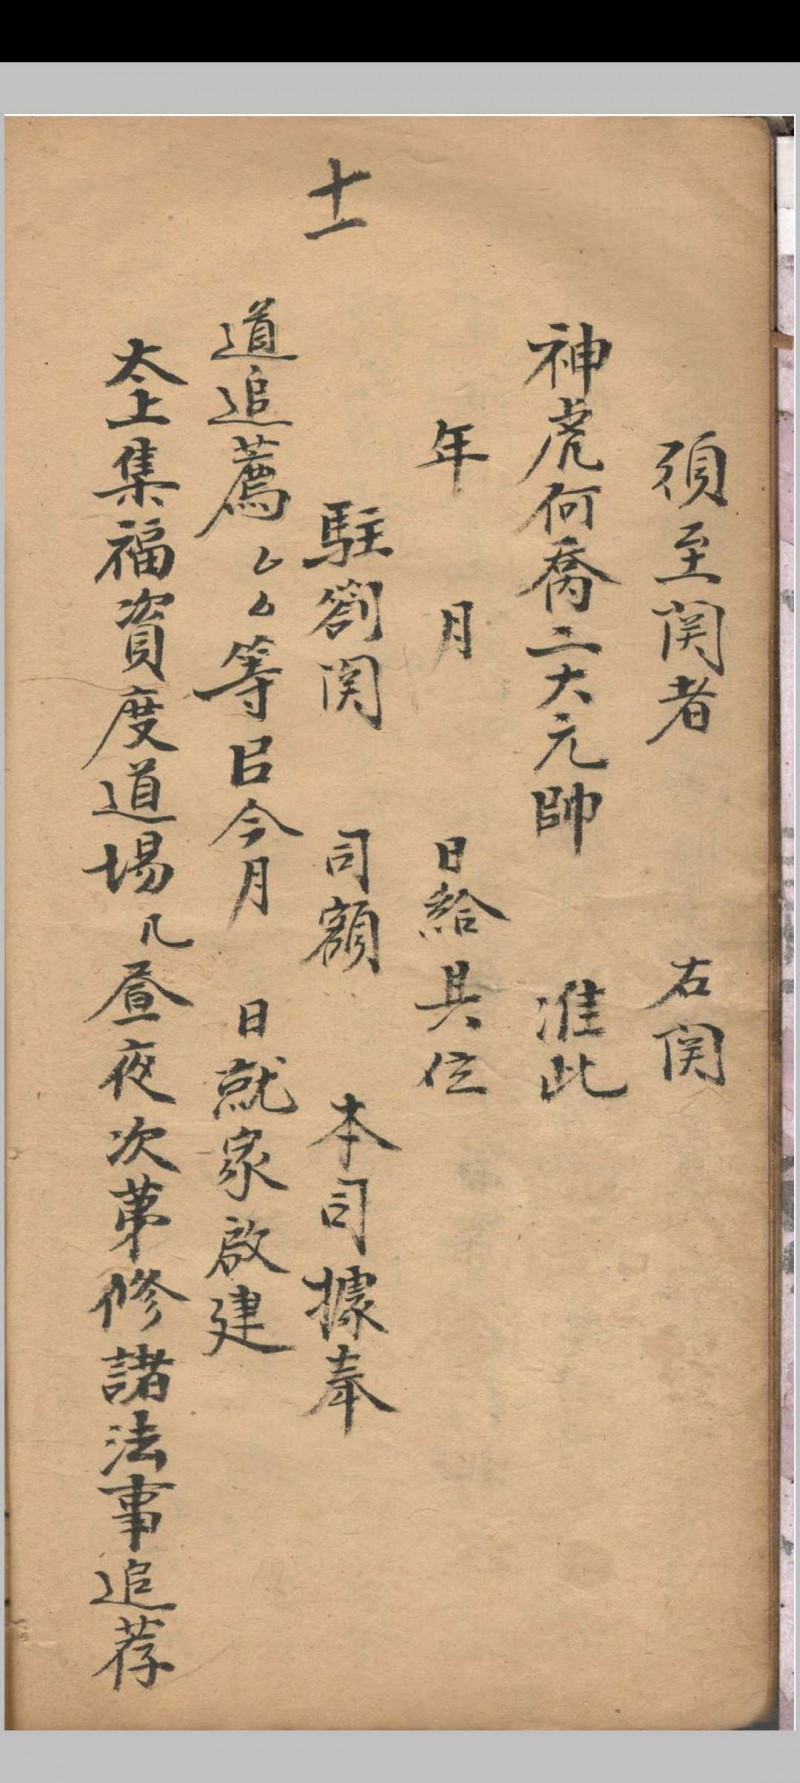 須至関者　右関
神虎何喬二大元帥　准此
年　月　日給具位
十一　駐劄関　司額　本司據奉
道追薦厶厶等㠯今月　日就家啟建
太上集福資度道場凡昼夜次第修諸法事追荐